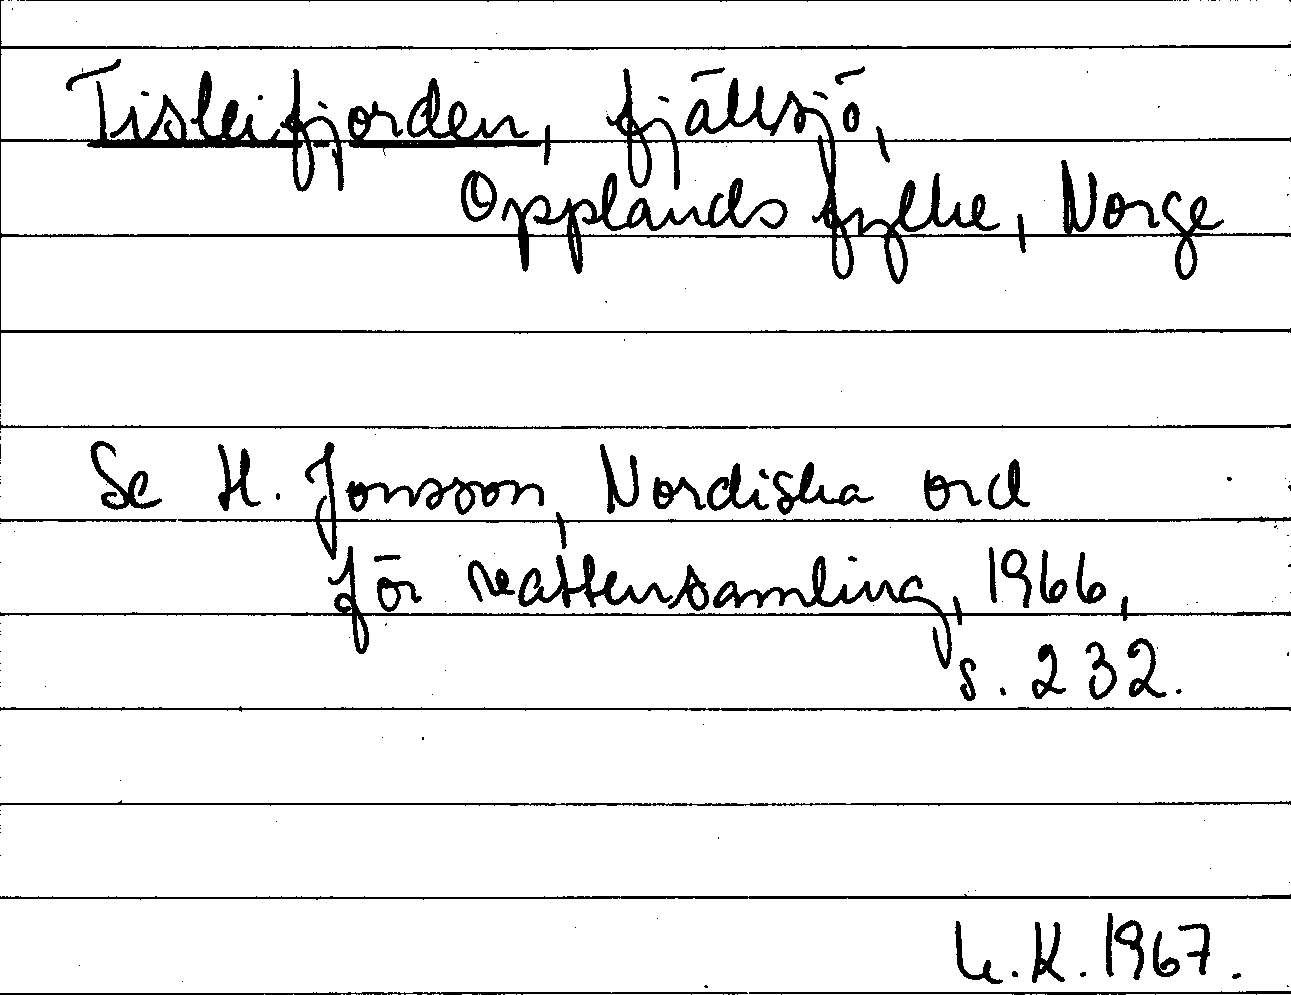 Tisleifjorden, fjällsjö,
Opplands fylke, Norge
Se H. Jonsson, Nordiska ord
för vattensamling, 1966,
s. 232.
K. 1967.